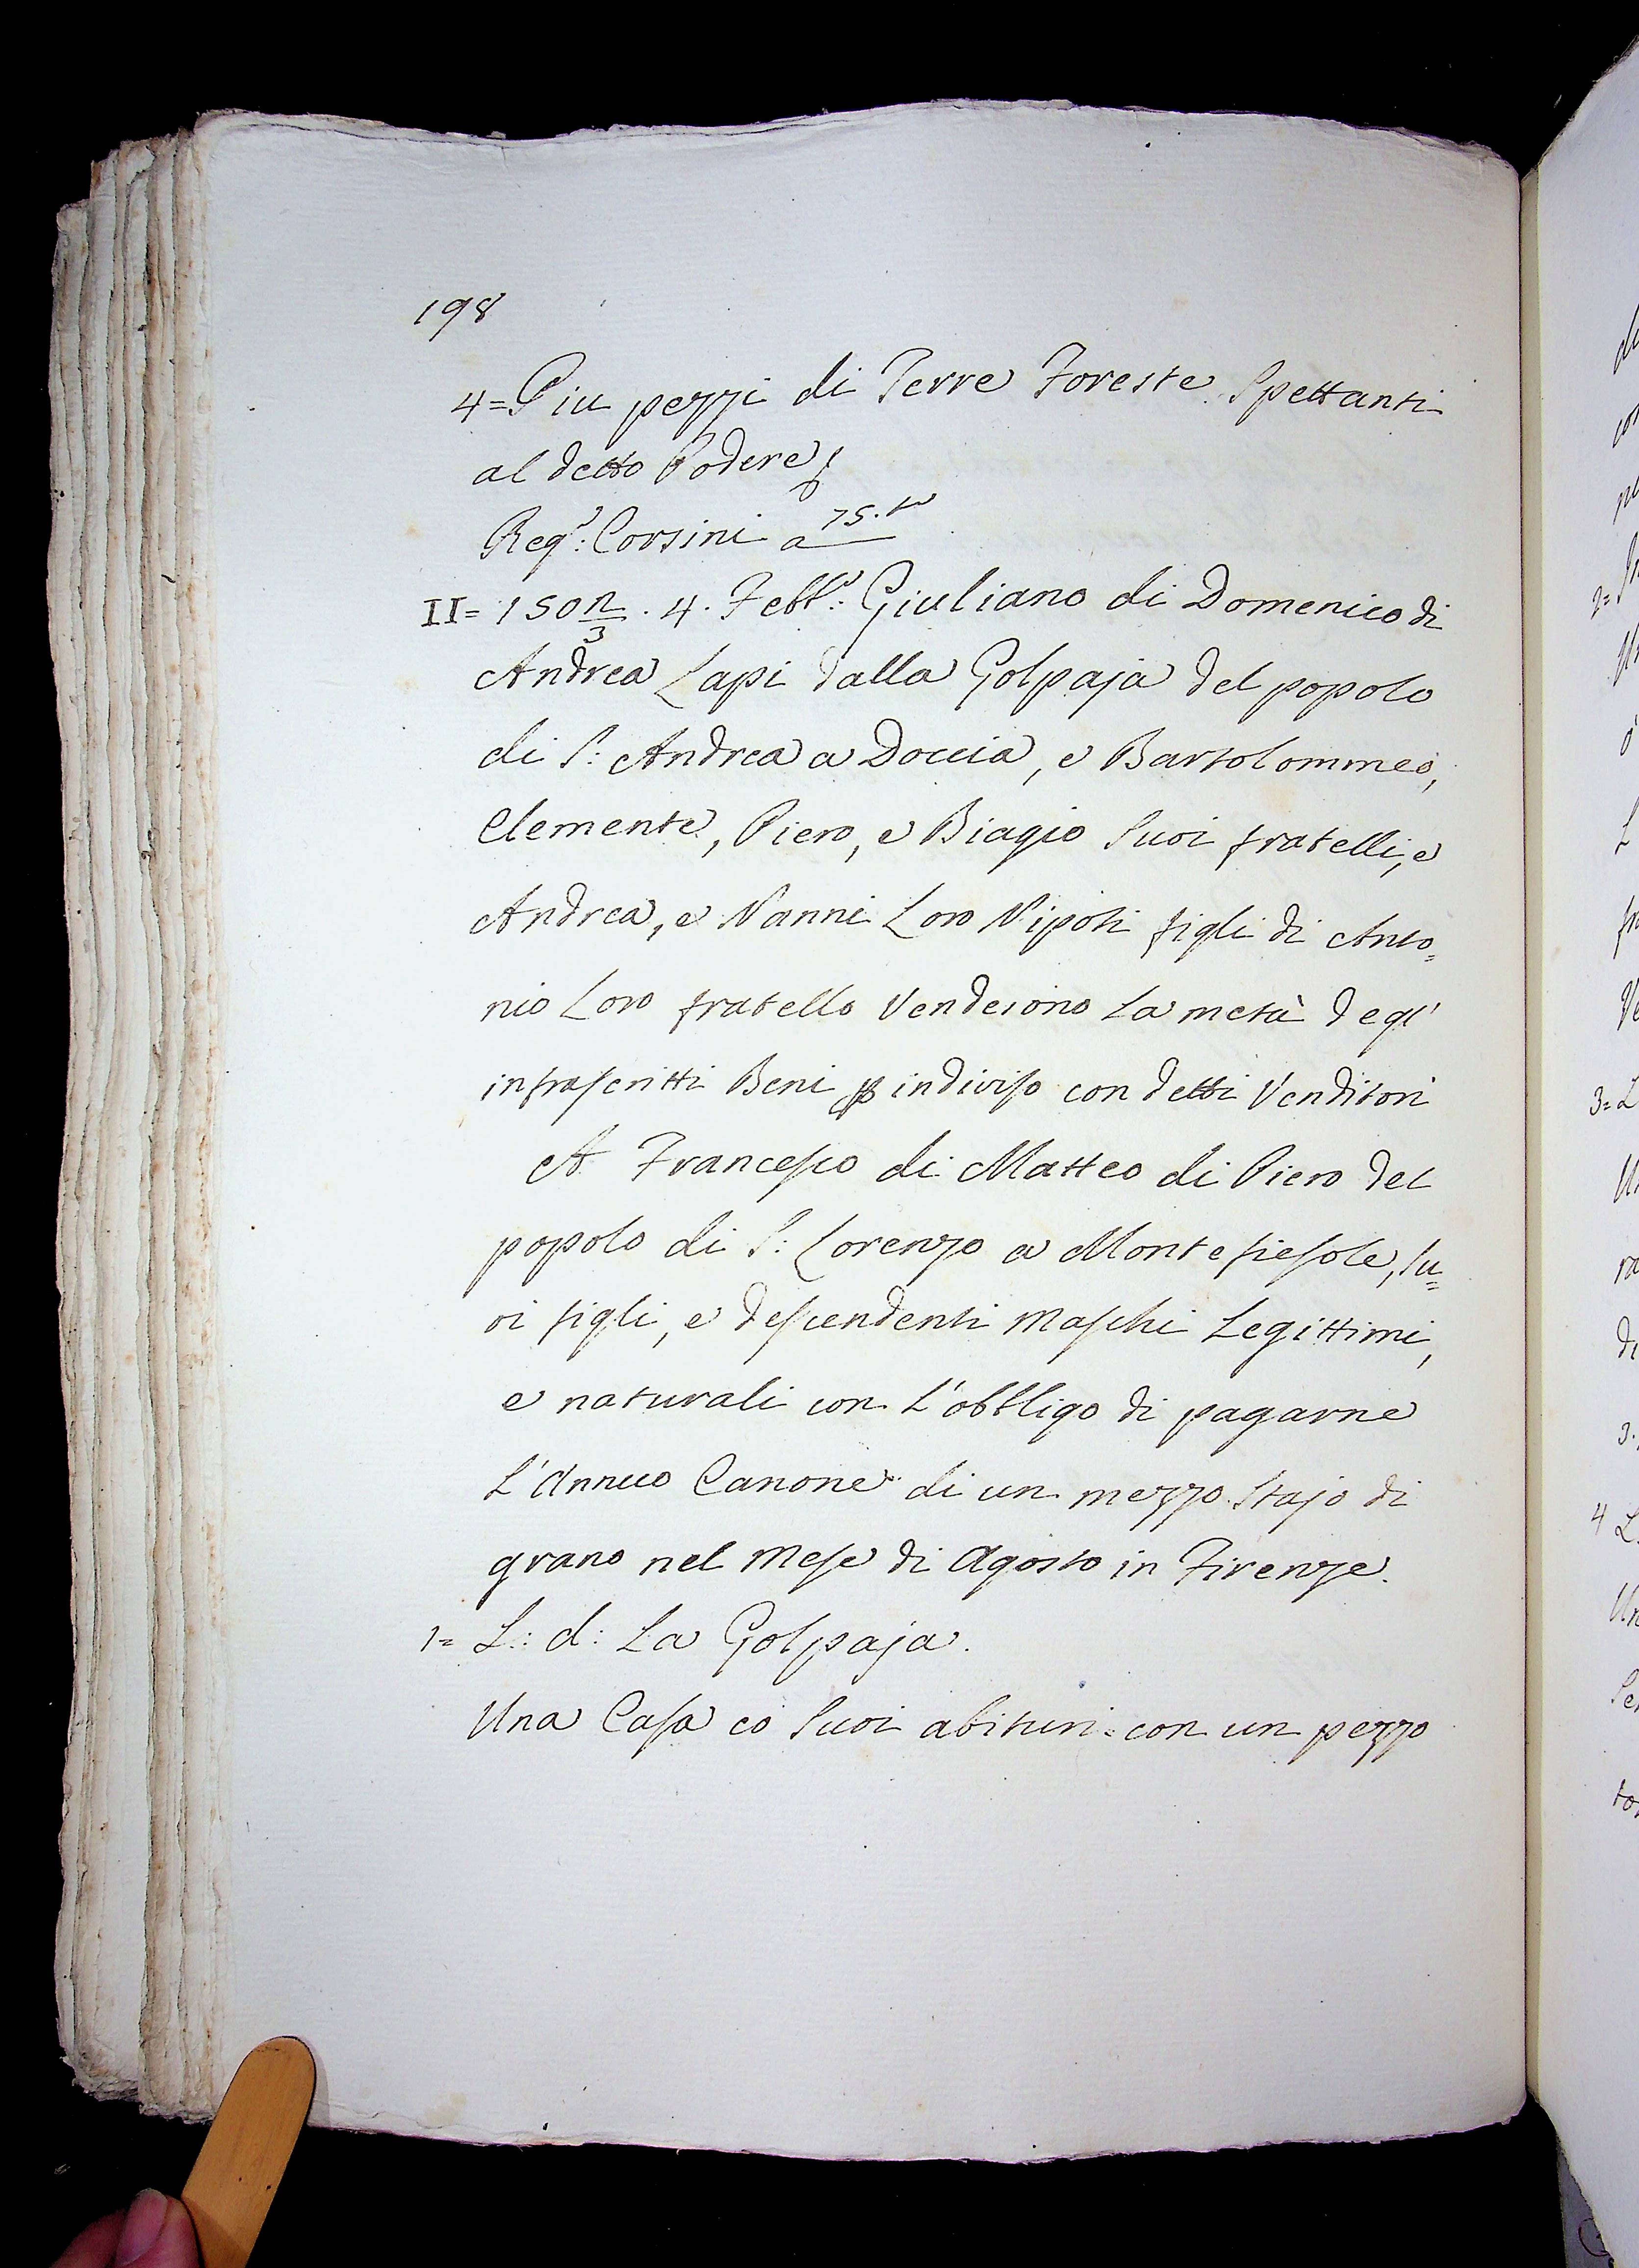 198
4= Piu pezzi di Terre Foreste Spettanti
al detto Podere
Reg:o Corsini a 75. to
II= 150 2/3 . 4. Febb:o Giuliano di Domenico di
Andrea Lapi dalla Golpaja del popolo
di S: Andrea a Doccia, e Bartolommeo,
Clemente, Piero, e Biagio Suoi fratelli, e
Andrea, e Nanni Loro Nipoti figli di Anto=
nio Loro fratello Venderono La metà degl'
infrascritti Beni p indiviso con detti Venditori
A Francesco di Matteo di Piero del
popolo di S: Lorenzo a Montefiesole, Su=
oi figli, e descendenti Maschi Legittimi,
e naturali con L'obbligo di pagarne
L'Annuo Canone di un mezzo Stajo di
grano nel Mese di Agosto in Firenze.
1= L: d: La Golpaja.
Una Casa co Suoi abituri con un pezzo